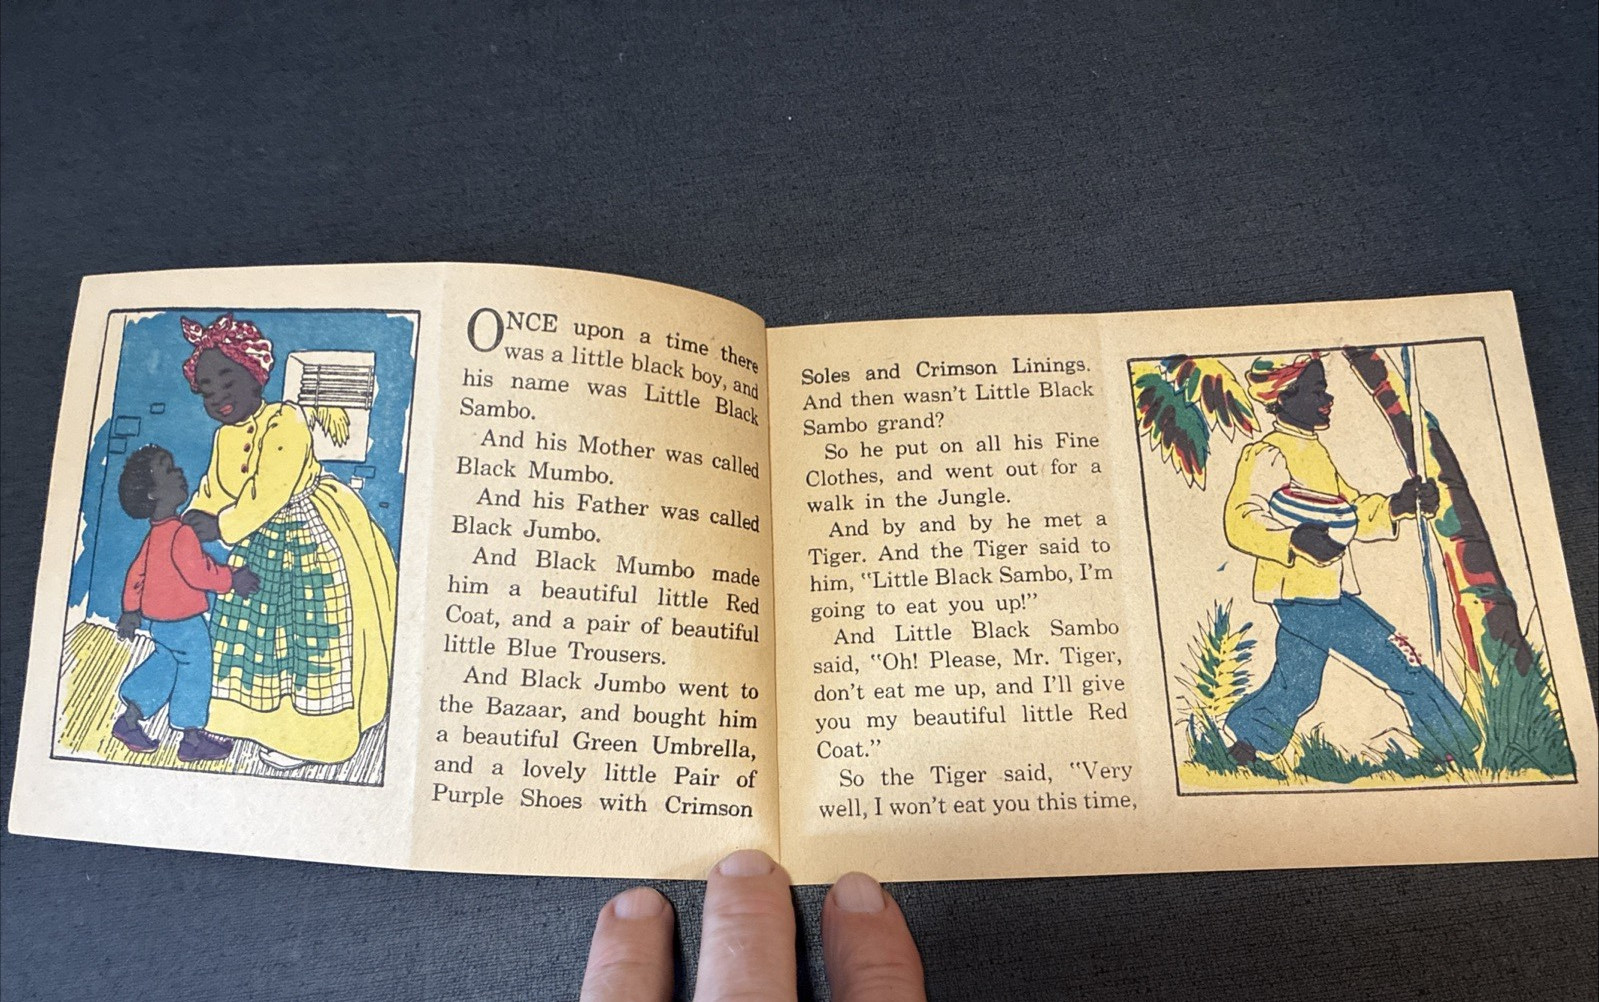 ONCE upon a time there
was a little black boy, and
his name was Little Black
Sambo.
And his Mother was called
Black Mumbo.
And his Father was called
Black Jumbo.
And Black Mumbo made
him a beautiful little Red
Coat, and a pair of beautiful
little Blue Trousers.
And Black Jumbo went to
the Bazaar, and bought him
a beautiful Green Umbrella,
and a lovely little Pair of
Purple Shoes with Crimson
Soles and Crimson Linings.
And then wasn't Little Black
Sambo grand?
So he put on all his Fine
Clothes, and went out for a
walk in the Jungle.
And by and by he met a
Tiger. And the Tiger said to
him, "Little Black Sambo, I'm
going to eat you up!"
And Little Black Sambo
said, "Oh! Please, Mr. Tiger,
don't eat me up, and I'll give
you my beautiful little Red
Coat."
So the Tiger said, "Very
well, I won't eat you this time,